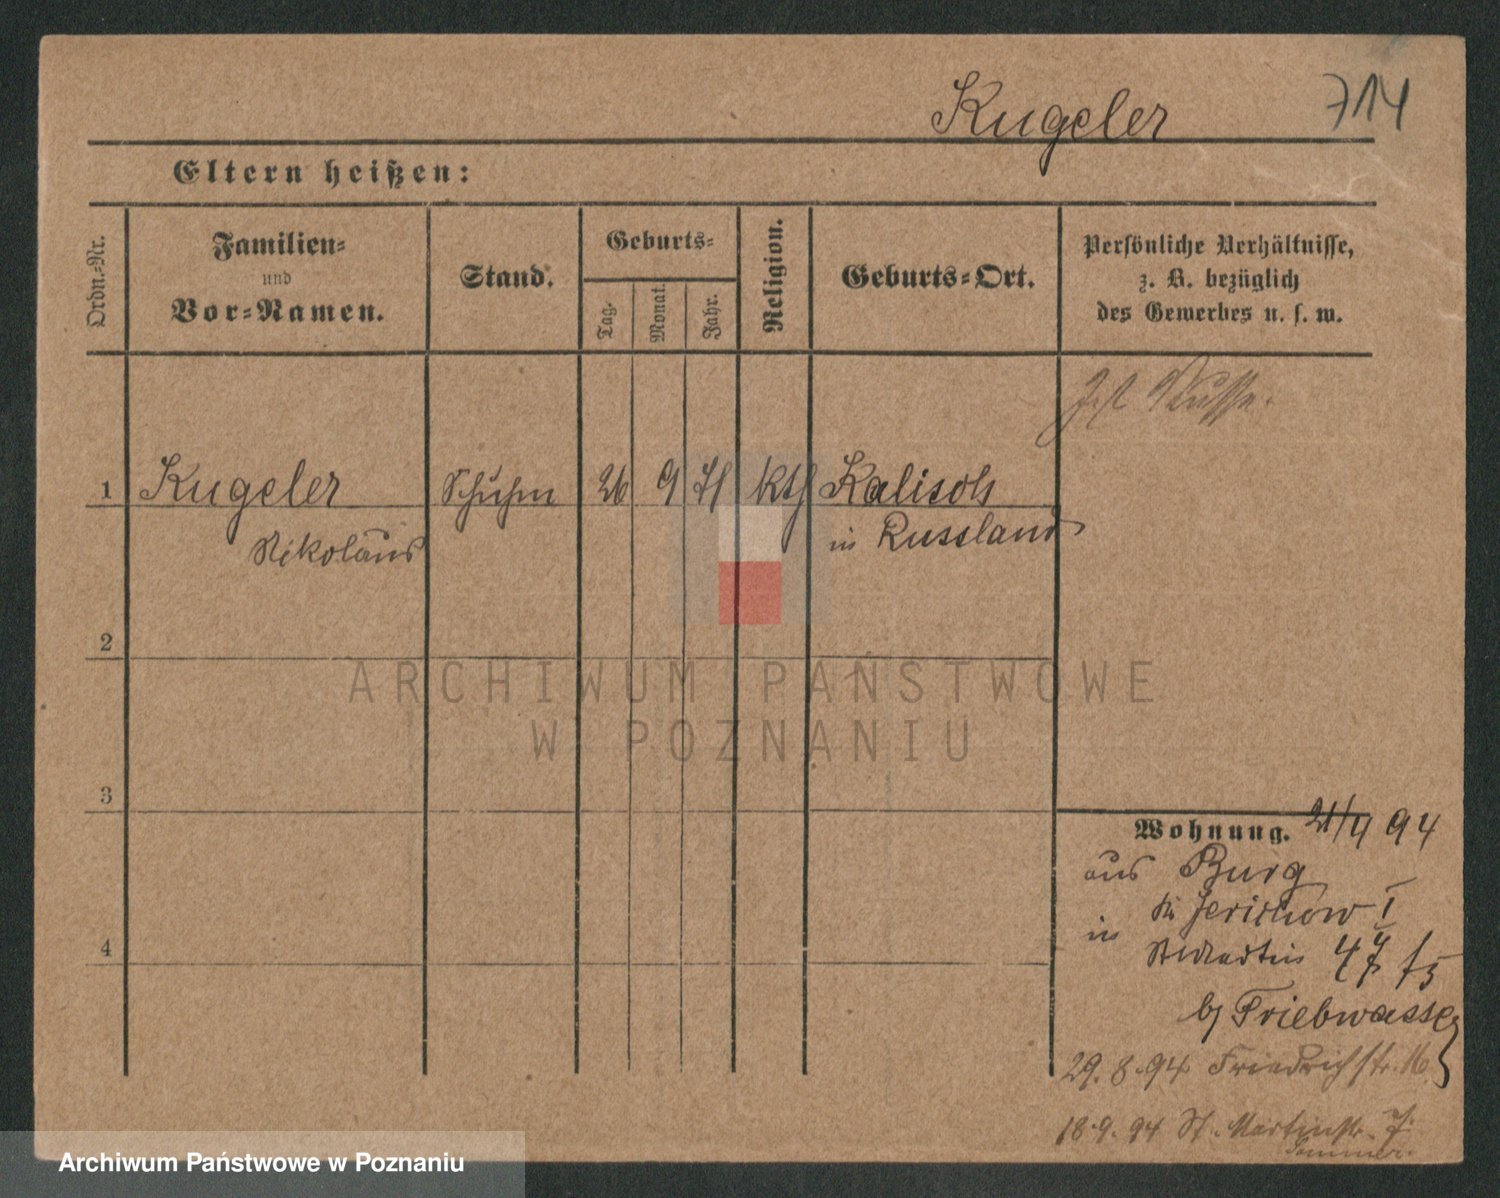 Kugeler 714
Eltern heißen:
Ordn.-Nr.
Familien-
und
Vor-Namen.
Stand.
Geburts-
Tag.
Monat.
Jahr.
Religion.
Geburts-Ort.
Persönliche Verhältnisse,
z. B. bezüglich
des Gewerbes u. s. w.
Ist Russe.
1 Kugeler Schuhm 26 9 71 kth Kalisch
Nikolaus in Russland
2
3
4
ARCHIWUM PAŃSTWOWE
W POZNANIU
Wohnung. 94
aus Burg
Jerichow I
in St Martin 47
b/ Friebwasser
29.8.94 Friedrichstr. 16
18.9.94 St. Martinstr. 7
Sommer.
Archiwum Państwowe w Poznaniu